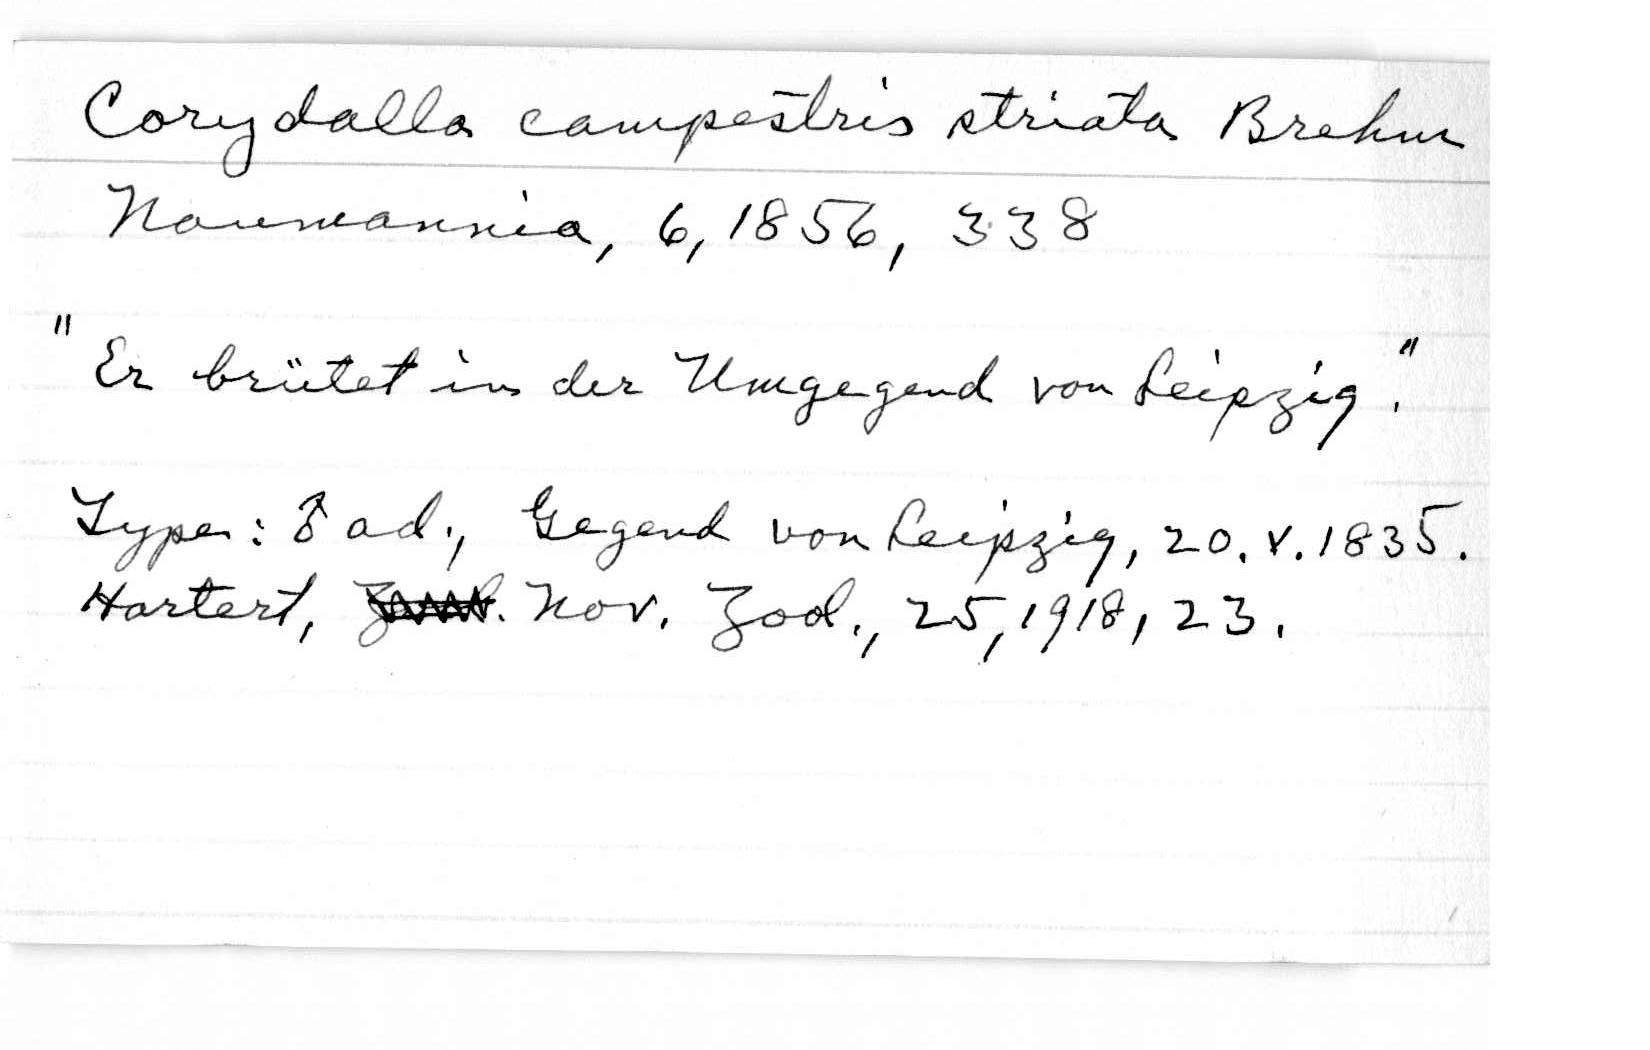 Corydalla campestris striata Brehm
Naumannia, 6, 1856, 338
"Er brütet in der Umgegend von Leipzig."
Type: ♂ ad., Gegend von Leipzig, 20.V.1835.
Hartert, Nov. Zool., 25, 1918, 23.